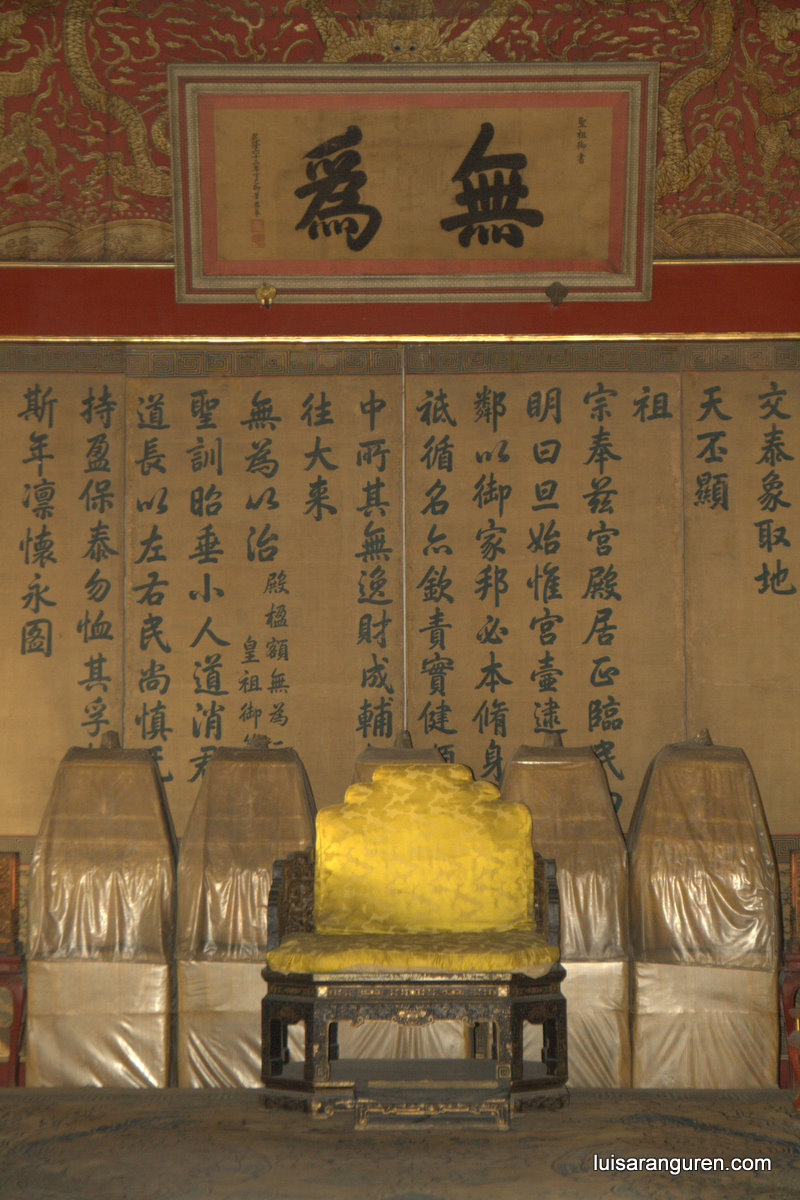 聖祖御書
無爲
交泰象取地
天丕顯
祖
宗奉茲宮殿居正臨民
明曰旦始惟宮壼逮
鄰以御家邦必本脩身
祗循名亦欽責實健
中所其無逸財成輔
往大来
無為以治
殿楹額無為
皇祖御
聖訓昭垂小人道消君
道長以左右民尚慎
持盈保泰勿恤其孚
斯年凛懷永圖
luisaranguren.com